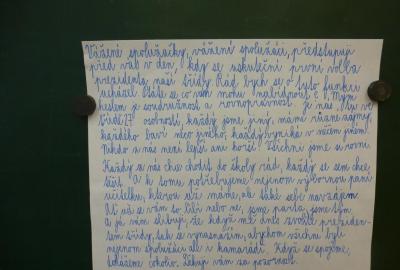 Vážené spolužačky, vážení spolužáci, předstupuji
před vás v den, kdy se uskuteční první volba
prezidenta naší třídy. Rád bych se o tuto funkci
ucházel. Ptáte se, co vám mohu nabídnout? Mým
heslem je soudružnost a rovnoprávnost. Je nás tu ve
třídě 27 osobností, každý jsme jiný, máme různé zájmy,
každého baví něco jiného, každý vyniká v něčem jiném.
Nikdo z nás není lepší ani horší. Všichni jsme si rovni.
Každý z nás chce chodit do školy rád, každý se sem chce
těšit. A k tomu potřebujeme nejenom výbornou paní
učitelku, kterou už máme, ale také sebe navzájem.
Ať už se vám to líbí nebo ne, jsme parta, jsme tým.
A já vám slibuji, že když mě zvolíte preziden-
tem třídy, tak se vynasnažím, abychom všichni byli
nejenom spolužáci ale i kamarádi. Když se spojíme,
dokážeme cokoliv. Děkuji vám za pozornost.